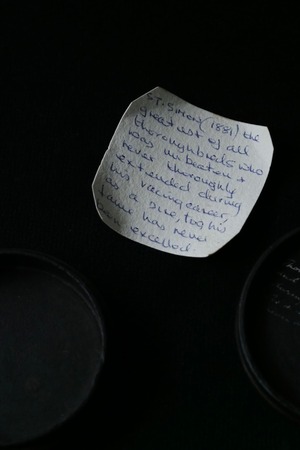 St. Simon (1881) the
greatest of all
thoroughbreds who
was unbeaten &
never thoroughly
extended during
his racing career,
as a sire, too, his
fame has never
been excelled.